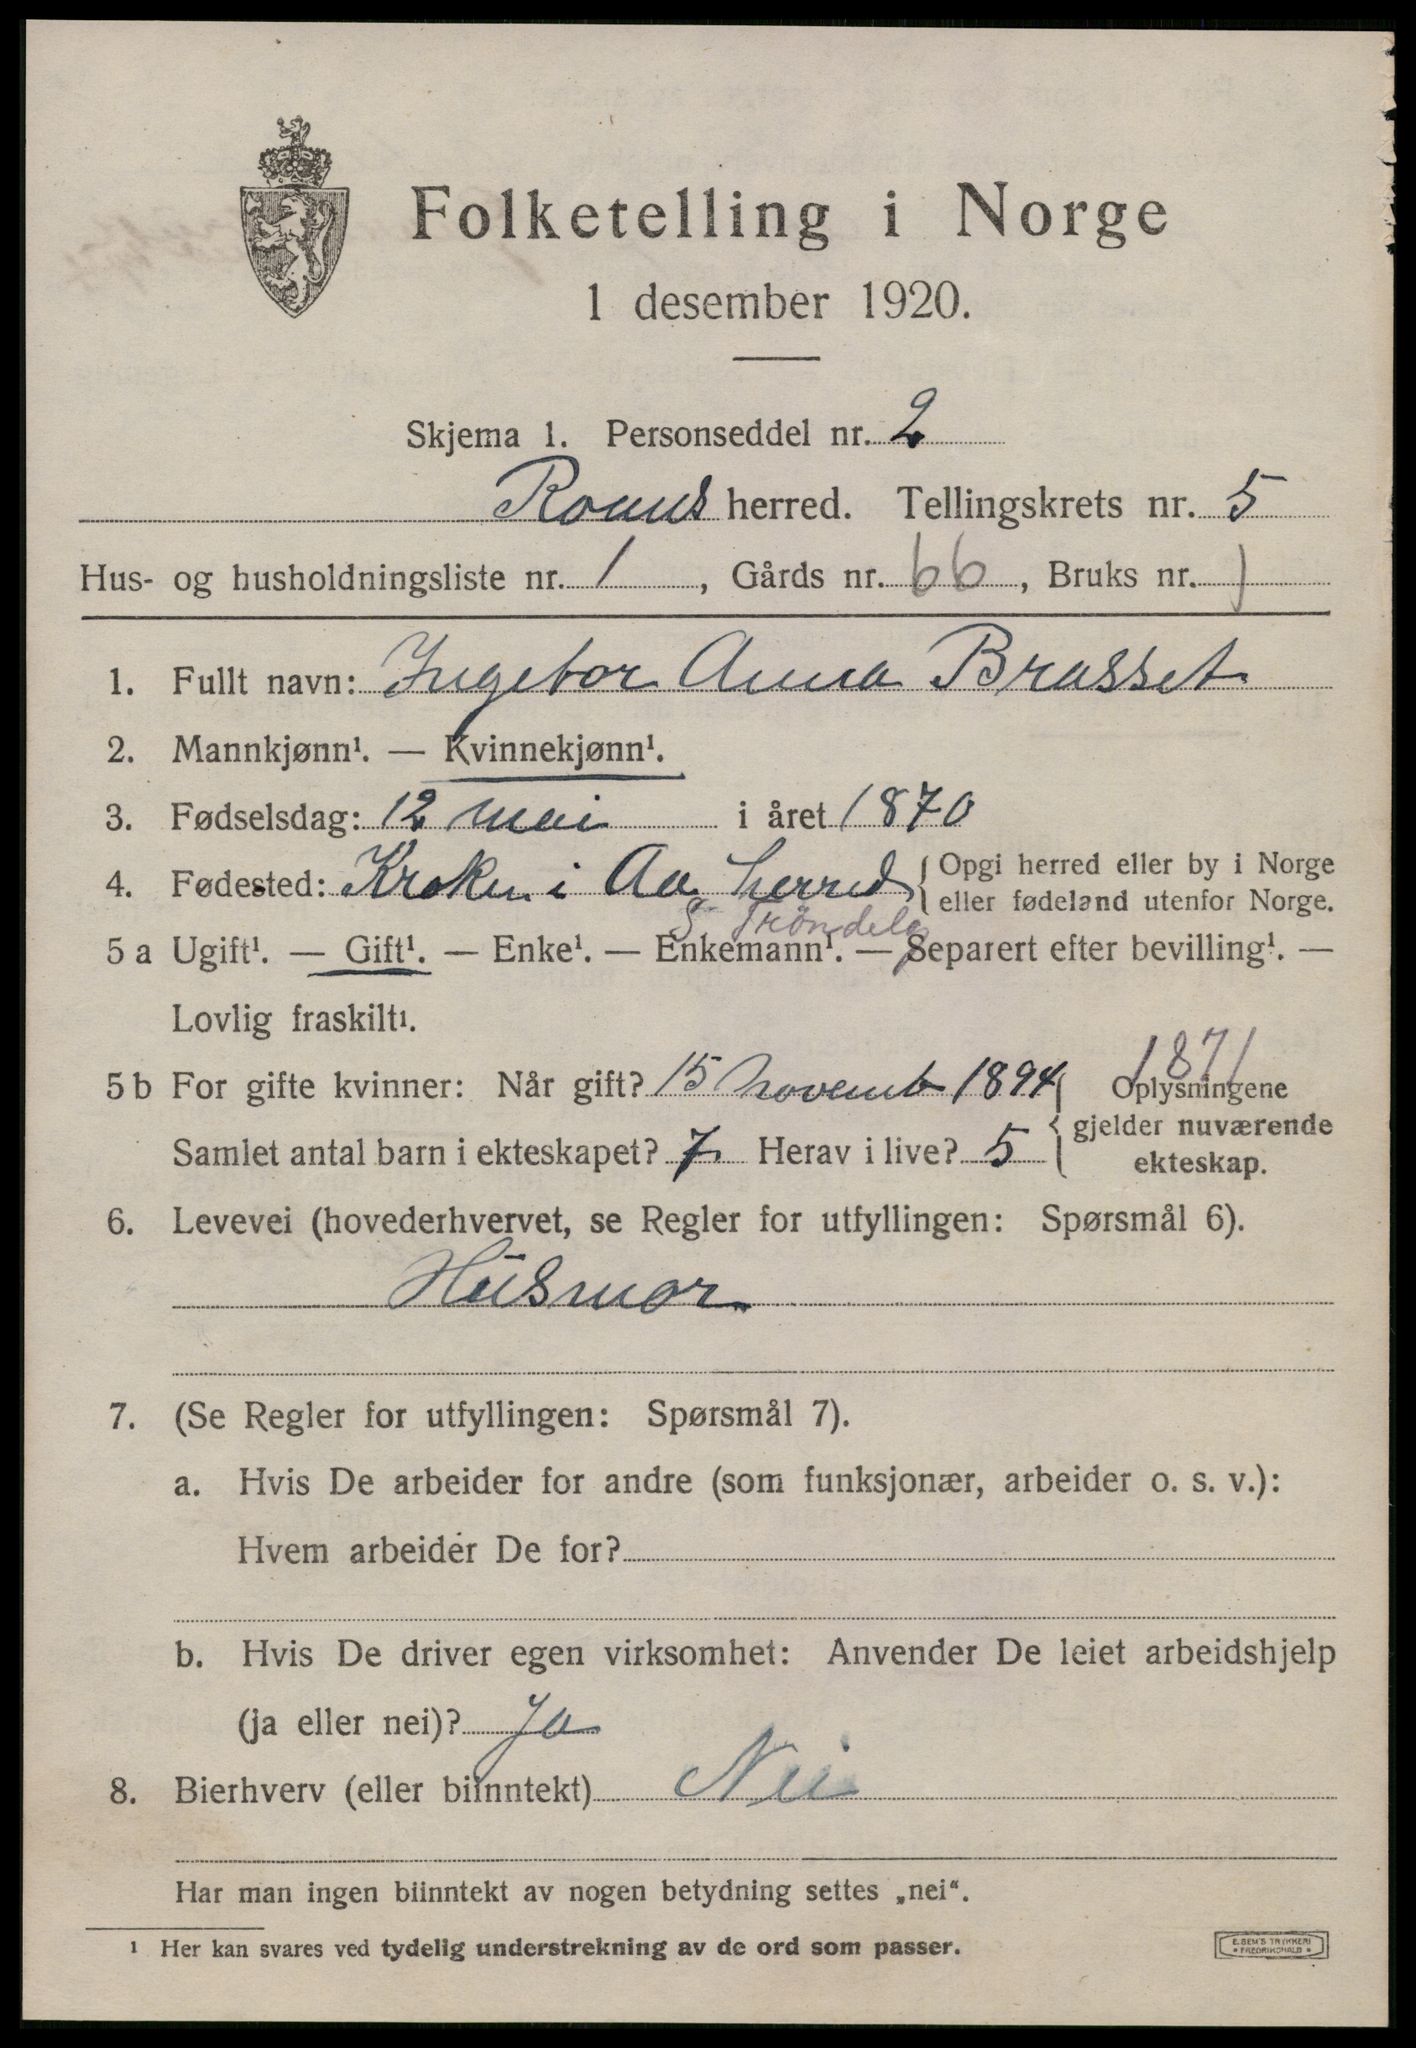 Folketelling i Norge
1 desember 1920.
Skjema 1. Personseddel nr. 2
Roms herred. Tellingskrets nr. 5
Hus- og husholdningsliste nr. 1, Gårds nr. 66, Bruks nr. 1
1. Fullt navn: Ingebor Anna Brasset
2. Mannkjønn¹. — Kvinnekjønn¹.
3. Fødselsdag: 12 mai i året 1870
4. Fødested: Kroken i Aa herred { Opgi herred eller by i Norge
eller fødeland utenfor Norge.
S Trøndelag
5 a Ugift¹. — Gift¹. — Enke¹. — Enkemann¹. — Separert efter bevilling¹. —
Lovlig fraskilt¹.
1871
5 b For gifte kvinner: Når gift? 15 novemb 1894 { Oplysningene
gjelder nuværende
Samlet antal barn i ekteskapet? 7 Herav i live? 5
ekteskap.
6. Levevei (hovederhvervet, se Regler for utfyllingen: Spørsmål 6).
Husmor
7. (Se Regler for utfyllingen: Spørsmål 7).
a. Hvis De arbeider for andre (som funksjonær, arbeider o. s. v.):
Hvem arbeider De for?
b. Hvis De driver egen virksomhet: Anvender De leiet arbeidshjelp
(ja eller nei)? Ja
8. Bierhverv (eller biinntekt) Nei
Har man ingen biinntekt av nogen betydning settes „nei“.
¹ Her kan svares ved tydelig understrekning av de ord som passer.
E. SEM'S TRYKKERI
* FREDRIKSHALD *